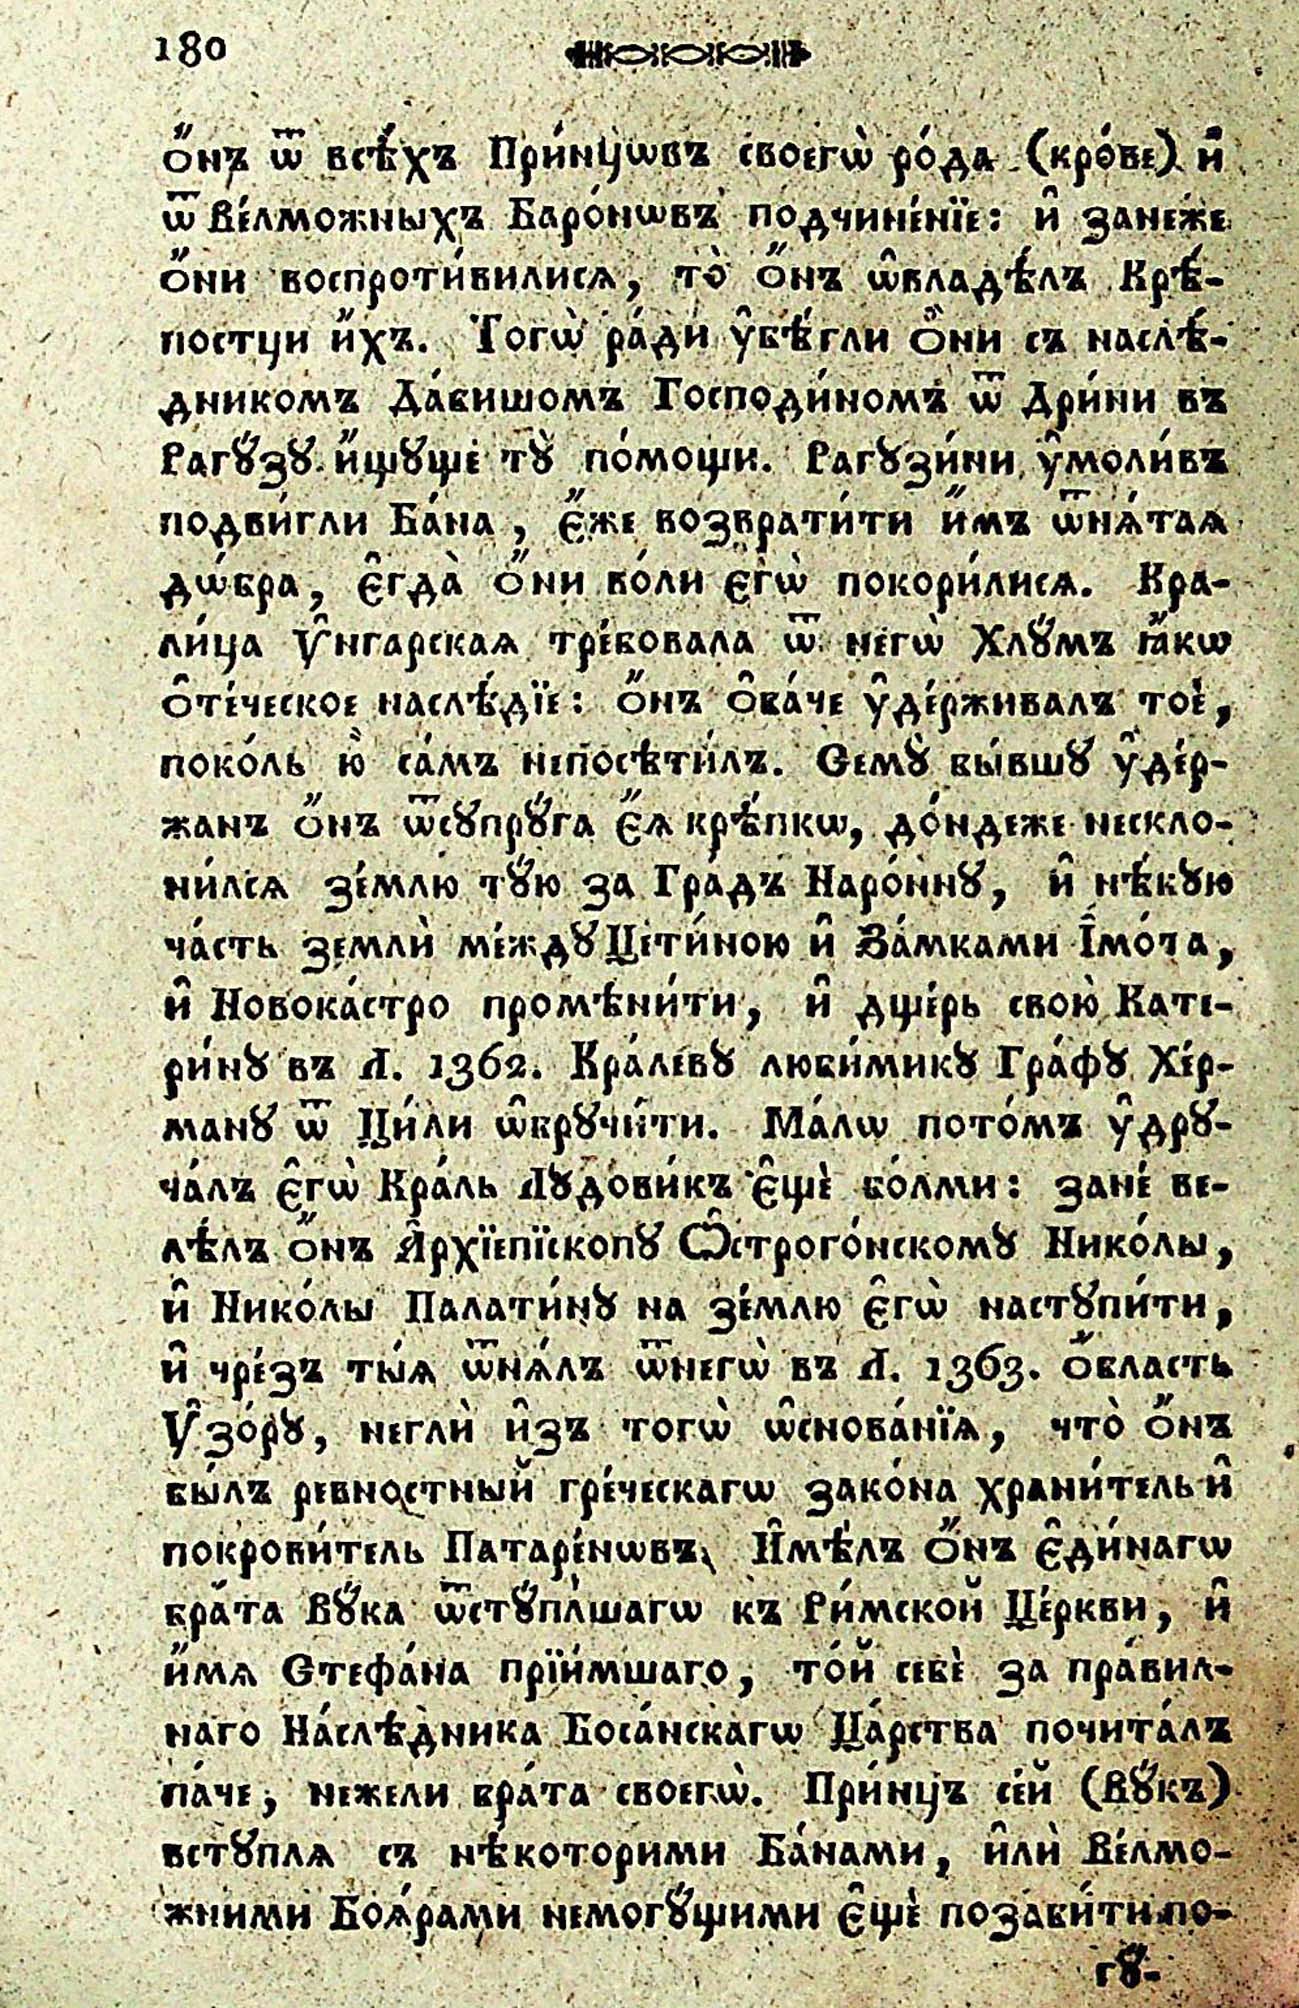 180
ѻ҆́нъ ѿ всѣ́хъ При́нцѡвъ своегѡ̀ ро́да (кро́ве) и҆
ѿ Ве́лможныхъ Баро́нѡвъ подчине́нїе: и҆ зане́же
ѻ҆́ни воспроти́вилисѧ, то̀ ѻ҆́нъ ѡ҆владѣ́лъ Крѣ́-
постци и҆́хъ. Тогѡ̀ ра́ди ᲂу҆бѣ́гли ѻ҆́ни съ наслѣ́-
дникомъ Да́бишомъ Господи́номъ ѿ Дри́ни въ
Рагꙋ́зꙋ и҆́щꙋще тꙋ̀ по́мощи. Рагꙋзи́ни ᲂу҆моли́въ
подви́гли Ба́на, є҆́же возврати́ти и҆́мъ ѿнѧ́таѧ
дѡ́бра, є҆гда̀ ѻ҆́ни во́ли є҆гѡ̀ покори́лисѧ. Кра-
ли́ца Ѵ҆нгарскаѧ тре́бовала ѿ негѡ̀ Хлꙋ́мъ ꙗ҆́кѡ
ѻ҆те́ческое наслѣ́дїе: ѻ҆́нъ ѻ҆ба́че ᲂу҆де́рживалъ тоѐ,
поко́ль ю҆̀ са́мъ непосѣти́лъ. Семꙋ̀ бы́вшꙋ ᲂу҆де́р-
жанъ ѻ҆́нъ ѿсꙋпрꙋ́га є҆́ѧ крѣ́пкѡ, до́ндеже нескло-
ни́лсѧ зе́млю тꙋ́ю за Гра́дъ Наро́ннꙋ, и҆ нѣ́кꙋю
ча́сть землѝ ме́ждꙋ Цети́ною и҆ За́мками І҆мо́та,
и҆ Новока́стро промѣни́ти, и҆ дще́рь свою̀ Кате-
ри́нꙋ въ Л. 1362. Кра́левꙋ люби́микꙋ Гра́фꙋ Хе́р-
манꙋ ѿ Ци́ли ѡ҆брꙋчи́ти. Ма́лѡ пото́мъ ᲂу҆дрꙋ-
ча́лъ є҆гѡ̀ Кра́ль Лꙋдови́къ є҆щѐ бо́лми: зане́ ве-
лѣ́лъ ѻ҆́нъ А҆рхїепі́скопꙋ Ѡ҆строго́нскомꙋ Нико́лы,
и҆ Нико́лы Палати́нꙋ на зе́млю є҆гѡ̀ настꙋпи́ти,
и҆ чре́зъ ты́ѧ ѿнѧ́лъ ѿнегѡ̀ въ Л. 1363. ѻ҆́бласть
Ѵ҆зо́рꙋ, неглѝ и҆зъ тогѡ̀ ѡ҆снова́нїѧ, что̀ ѻ҆́нъ
бы́лъ ре́вностный гре́ческагѡ зако́на храни́тель и҆
покрови́тель Патаре́нѡвъ, И҆мѣ́лъ ѻ҆́нъ є҆ди́нагѡ
бра́та Вꙋ́ка ѿстꙋ́плшагѡ къ Ри́мской Це́ркви, и҆
и҆́мѧ Стефа́на прїи́мшаго, то́й себѐ за пра́вил-
наго На́слѣдника Боса́нскагѡ Ца́рства почита́лъ
па́че, нежели бра́та своегѡ̀. При́нцъ се́й (Вꙋ́къ)
встꙋплѧ съ нѣ́которими Ба́нами, и҆лѝ Ве́лмо-
жними Боѧ́рами немогꙋ́щими є҆щѐ позаби́ти по-
гꙋ́-